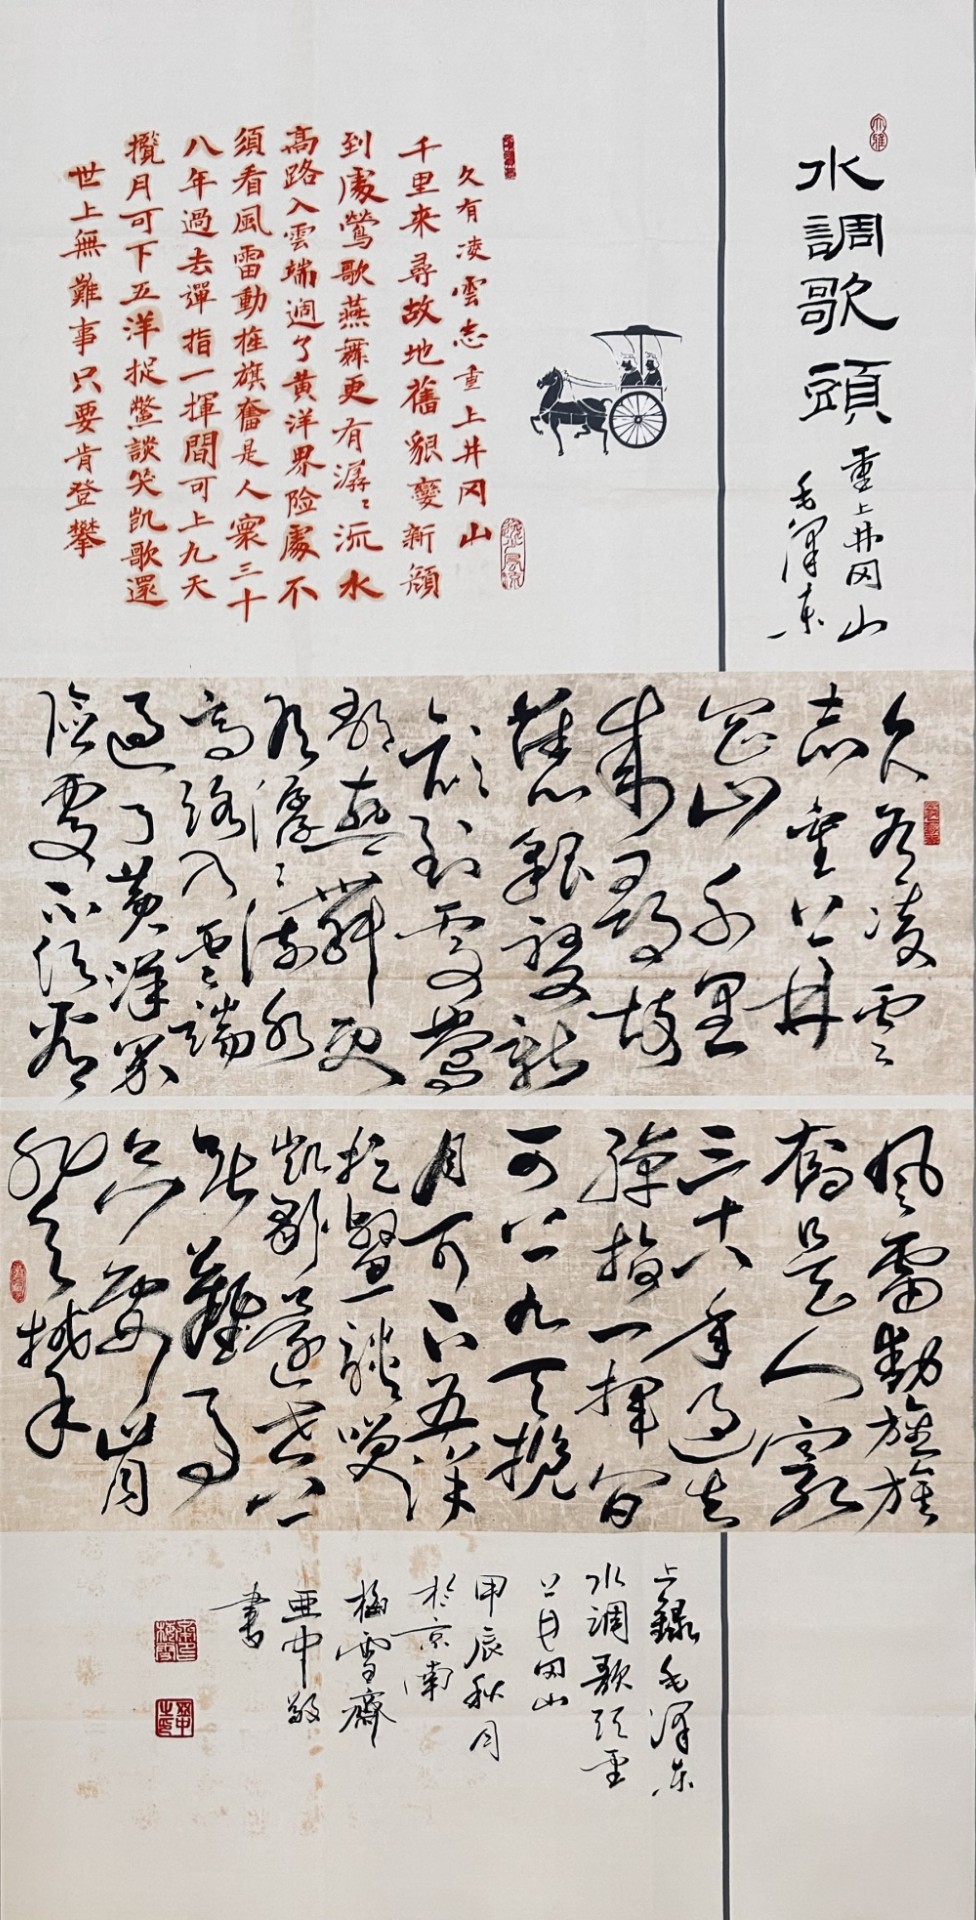 水調歌頭
重上井冈山
毛澤東
久有凌雲志重上井冈山
千里來尋故地舊貌變新顔
到處鶯歌燕舞更有潺〻流水
高路入雲端過了黄洋界险處不
須看風雷動旌旗奮是人寰三十
八年過去彈指一揮間可上九天
攬月可下五洋捉鱉談笑凱歌還
世上無難事只要肯登攀
久有凌雲
志重上井
岡山千里
來尋故
舊貌變新
顔到處鶯
歌燕舞更
有潺〻流水
高路入雲端
過了黄洋界
險處不須看
風雷動旌旗
奮是人寰
三十八年過去
彈指一揮間
可上九天攬
月可下五洋
捉鱉談笑
凱歌還世上
無難事
只要肯
登攀
上録毛澤東
水調歌頭重
上井冈山
甲辰秋月
於京南
梅雪齋
亜中敬
書